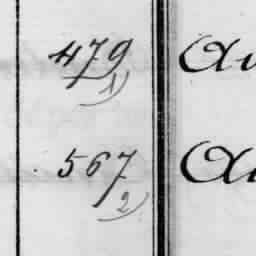 479
1)
567
2)